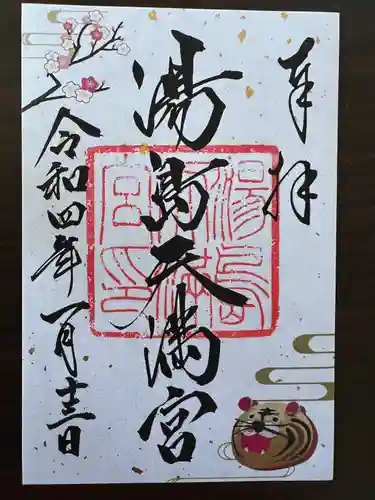 奉拝
湯島天満宮
令和四年一月十三日
湯島
天満
宮印